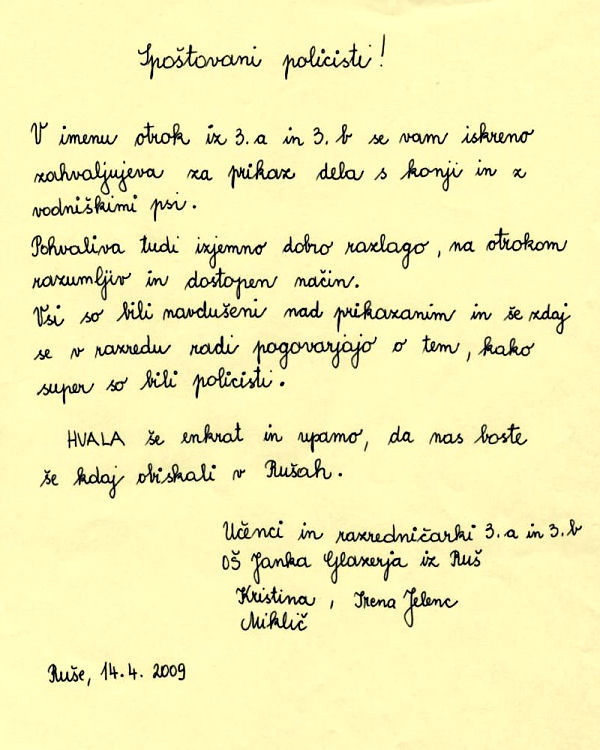 Spoštovani policisti!
V imenu otrok iz 3.a in 3.b se vam iskreno
zahvaljujeva za prikaz dela s konji in z
vodniškimi psi.
Pohvaliva tudi izjemno dobro razlago, na otrokom
razumljiv in dostopen način.
Vsi so bili navdušeni nad prikazanim in še zdaj
se v razredu radi pogovarjajo o tem, kako
super so bili policisti.
HVALA še enkrat in upamo, da nas boste
še kdaj obiskali v Rušah.
Učenci in razredničarki 3.a in 3.b
OŠ Janka Glazerja iz Ruš
Kristina, Irena Jelenc
Miklič
Ruše, 14.4. 2009